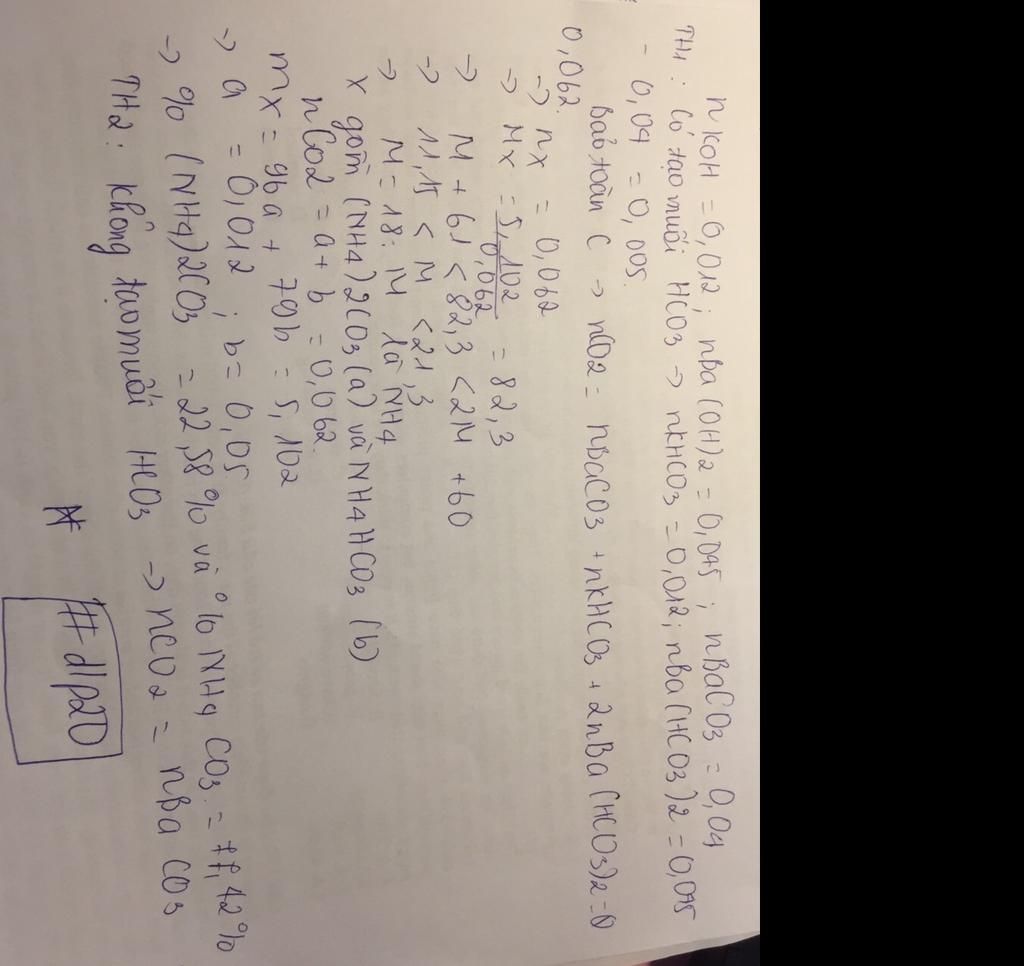 nKOH = 0,012; nBa(OH)2 = 0,045; nBaCO3 = 0,04
TH1: Có tạo muối HCO3 → nKHCO3 = 0,012; nBa(HCO3)2 = 0,045
- 0,04 = 0,005.
Bảo toàn C → nCO2 = nBaCO3 + nKHCO3 + 2nBa(HCO3)2 = 0
0,062.
→ nX = 0,062
→ MX = 5,102/0,062 = 82,3
→ M + 61 < 82,3 < 2M + 60
→ 11,15 < M < 21,3
→ M = 18: M là NH4
X gồm (NH4)2CO3 (a) và NH4HCO3 (b)
nCO2 = a + b = 0,062.
mX = 96a + 79b = 5,102
→ a = 0,012; b = 0,05.
→ % (NH4)2CO3 = 22,58% và % NH4 CO3. = 77,42%
TH2: không tạo muối HCO3 → nCO2 = nBaCO3
#dlp20